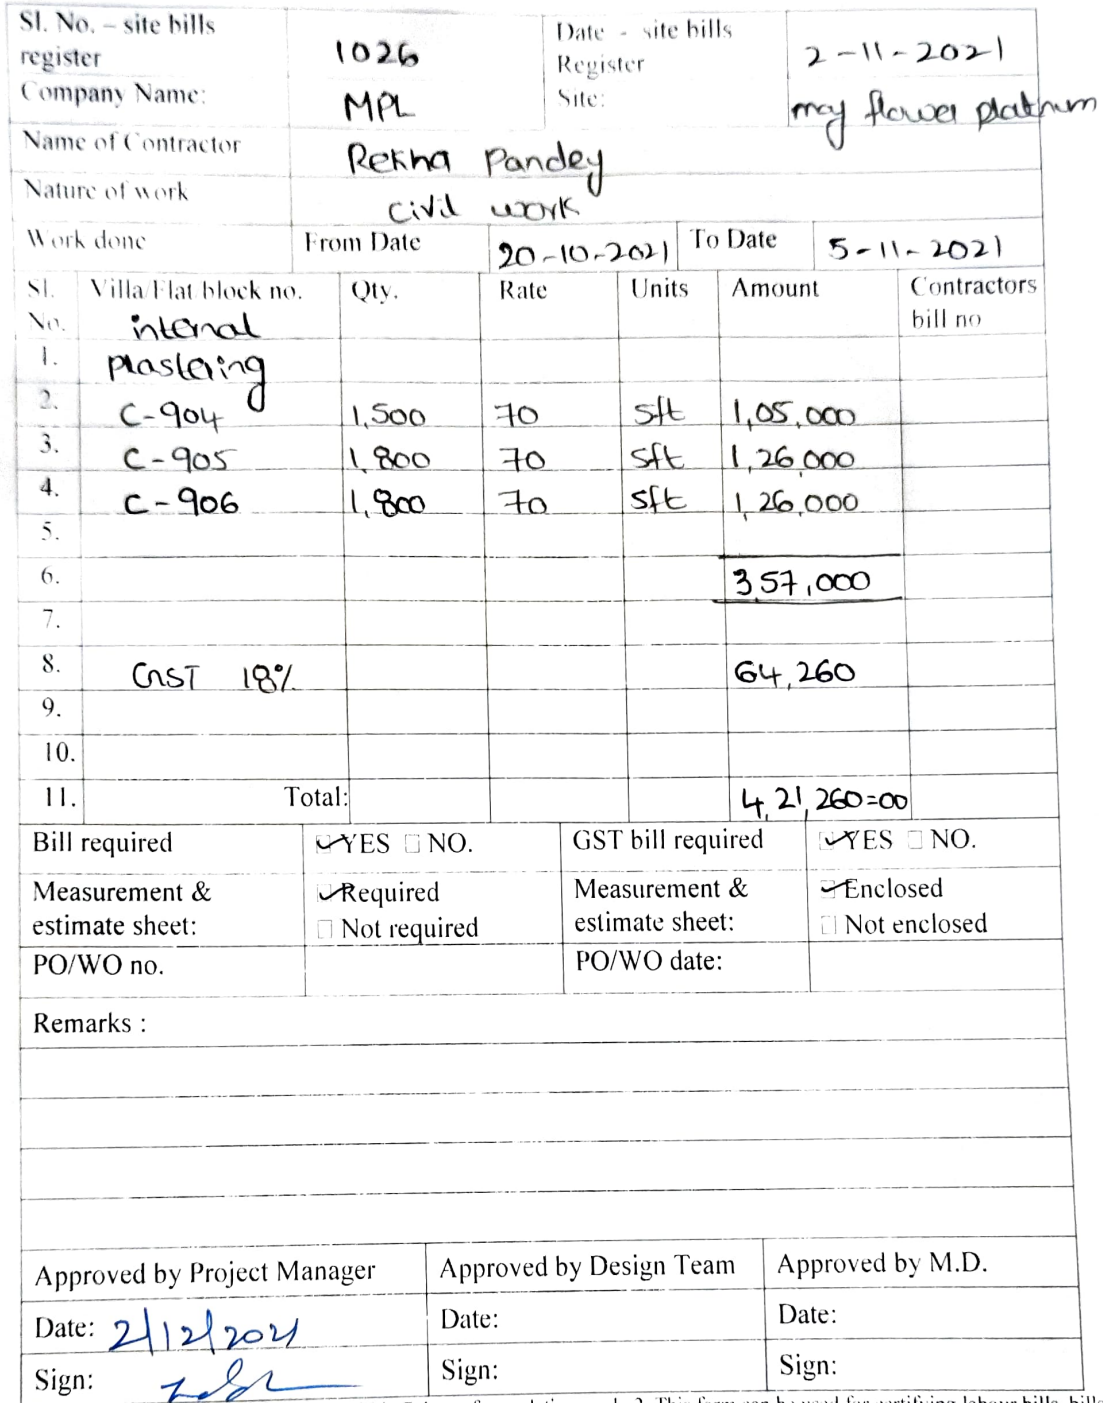 Sl. No. – site bills register 1026 Date - site bills Register 2-11-2021
Company Name: MPL Site: may flower platinum
Name of Contractor Rekha Pandey
Nature of work civil work
Work done From Date 20-10-2021 To Date 5-11-2021
Sl. No. Villa/Flat block no. Qty. Rate Units Amount Contractors bill no
internal
1. plastering
2. C-904 1,500 70 sft 1,05,000
3. C-905 1,800 70 sft 1,26,000
4. C-906 1,800 70 sft 1,26,000
5.
6. 3,57,000
7.
8. GST 18% 64,260
9.
10.
11. Total: 4,21,260=00
Bill required YES NO. GST bill required YES NO.
Measurement & estimate sheet: Required Not required Measurement & estimate sheet: Enclosed Not enclosed
PO/WO no. PO/WO date:
Remarks :
Approved by Project Manager Approved by Design Team Approved by M.D.
Date: 2/12/2021 Date: Date:
Sign: Sign: Sign:
2. This form can be used for certifying labour bills, bills